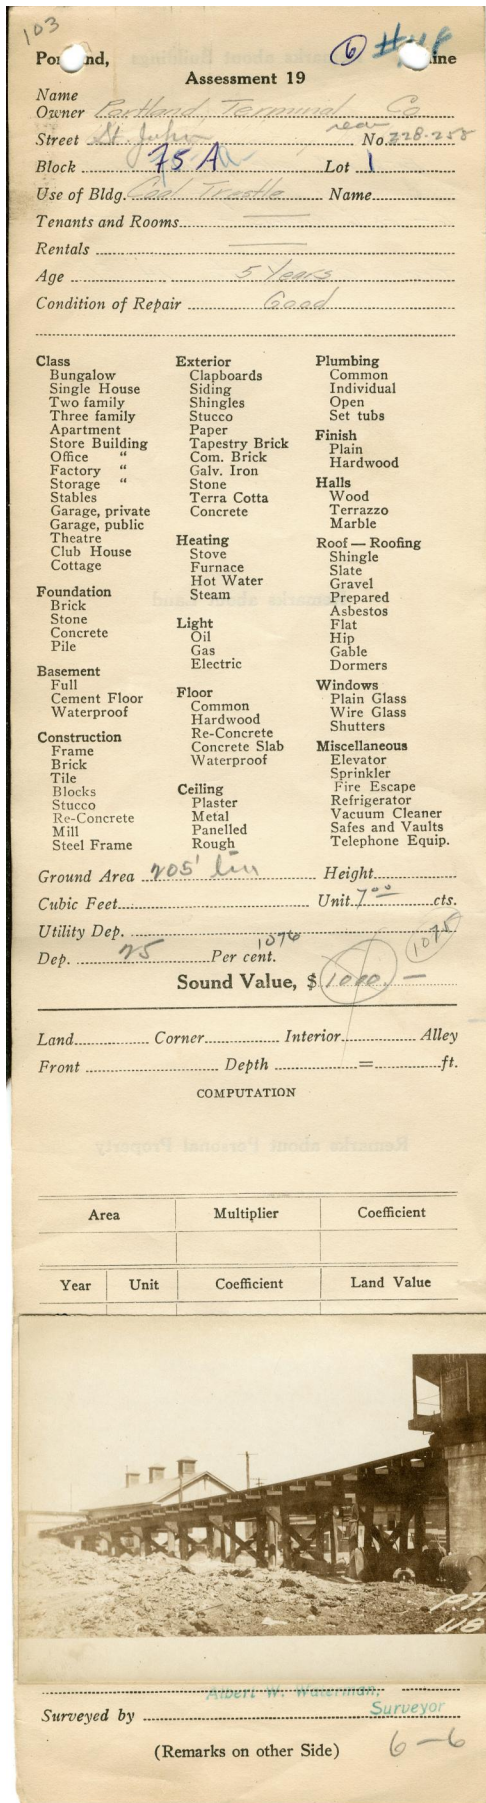 103
6 #48
Portland, ine
Assessment 19
Name
Owner Portland Terminal Co
Street St. John rear No. 228-258
Block 75 A Lot 1
Use of Bldg. Coal Trestle Name
Tenants and Rooms
Rentals
Age 5 Years
Condition of Repair Good
Class
Bungalow
Single House
Two family
Three family
Apartment
Store Building
Office "
Factory "
Storage "
Stables
Garage, private
Garage, public
Theatre
Club House
Cottage
Foundation
Brick
Stone
Concrete
Pile
Basement
Full
Cement Floor
Waterproof
Construction
Frame
Brick
Tile
Blocks
Stucco
Re-Concrete
Mill
Steel Frame
Exterior
Clapboards
Siding
Shingles
Stucco
Paper
Tapestry Brick
Com. Brick
Galv. Iron
Stone
Terra Cotta
Concrete
Heating
Stove
Furnace
Hot Water
Steam
Light
Oil
Gas
Electric
Floor
Common
Hardwood
Re-Concrete
Concrete Slab
Waterproof
Ceiling
Plaster
Metal
Panelled
Rough
Plumbing
Common
Individual
Open
Set tubs
Finish
Plain
Hardwood
Halls
Wood
Terrazzo
Marble
Roof — Roofing
Shingle
Slate
Gravel
Prepared
Asbestos
Flat
Hip
Gable
Dormers
Windows
Plain Glass
Wire Glass
Shutters
Miscellaneous
Elevator
Sprinkler
Fire Escape
Refrigerator
Vacuum Cleaner
Safes and Vaults
Telephone Equip.
Ground Area 205' lin Height
Cubic Feet Unit 7 00 cts.
Utility Dep.
Dep. 25 Per cent. 1076 1075
Sound Value, $ 1000. —
Land Corner Interior Alley
Front Depth = ft.
COMPUTATION
Area Multiplier Coefficient
Year Unit Coefficient Land Value
P.T.
118
Albert W. Waterman,
Surveyed by Surveyor
(Remarks on other Side) 6-6